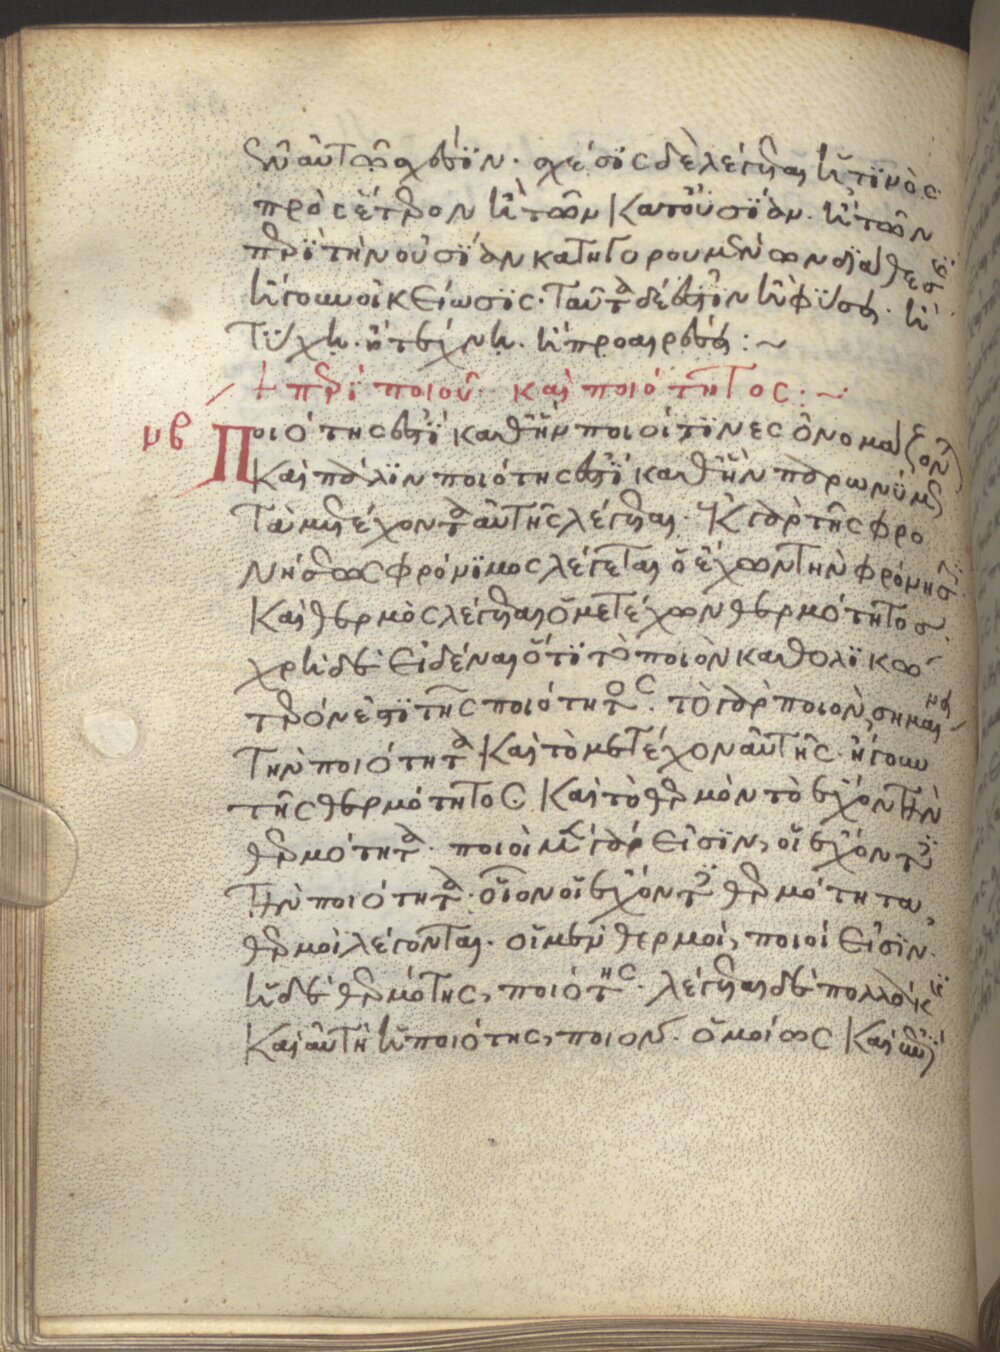 ἐν αὐτῶ σχέσϊν· σχέσϊς δὲ λέγεται ἡ τϊνὸς
πρὸς ἕτερον ἢ τῶν κατοὐσΐαν· ἢ τῶν
περῒ τὴν οὐσΐαν κατηγορουμένων διάθεσϊς
ἤγουν οἰκείωσϊς· ταῦτα δέ ἐστϊν ἢ φύσει· ἢ
τύχη· ἢ τέχνη· ἢ προαιρέσει :~
+ περῒ ποιοῦ καὶ ποιότητος :~
μβ Ποιότης ἐστῒ καθἣν ποιοί τϊνες ὀνομάζονται
καὶ πάλϊν ποιότης ἐστῒ καθἣν παρωνύμως
τὰ μετέχοντα αὐτῆς λέγεται· ἐκ γὰρ τῆς φρο
νήσεως φρόνϊμος λέγεται ὁ ἔχων τὴν φρόνησϊν
καὶ θερμὸς λέγεται ὁ μετέχων θερμότητος·
χρὴ δὲ εἰδέναι ὅτϊ τὸ ποιὸν καθολϊκώ
τερόν ἐστϊ τῆς ποιότητος· τὸ γὰρ ποιὸν, σημαίνει
τὴν ποιότητα καὶ τὸ μετέχον αὐτῆς· ἤγουν
τῆς θερμότητος καὶ τὸ θερμὸν τὸ ἔχον τὴν
θερμότητα· ποιοὶ μὲν γάρ εἰσϊν, οἱ ἔχοντες
τὴν ποιότητα· οἷον οἱ ἔχοντες θερμότητα,
θερμοὶ λέγονται· οἱ μὲν θερμοὶ, ποιοί εἰσϊν·
ἡ δὲ θερμότης, ποιότης· λέγεται δὲ πολλάκϊς
καὶ αὐτὴ ἡ ποιότης, ποιόν· ὁμοίως καὶ ἐπῒ